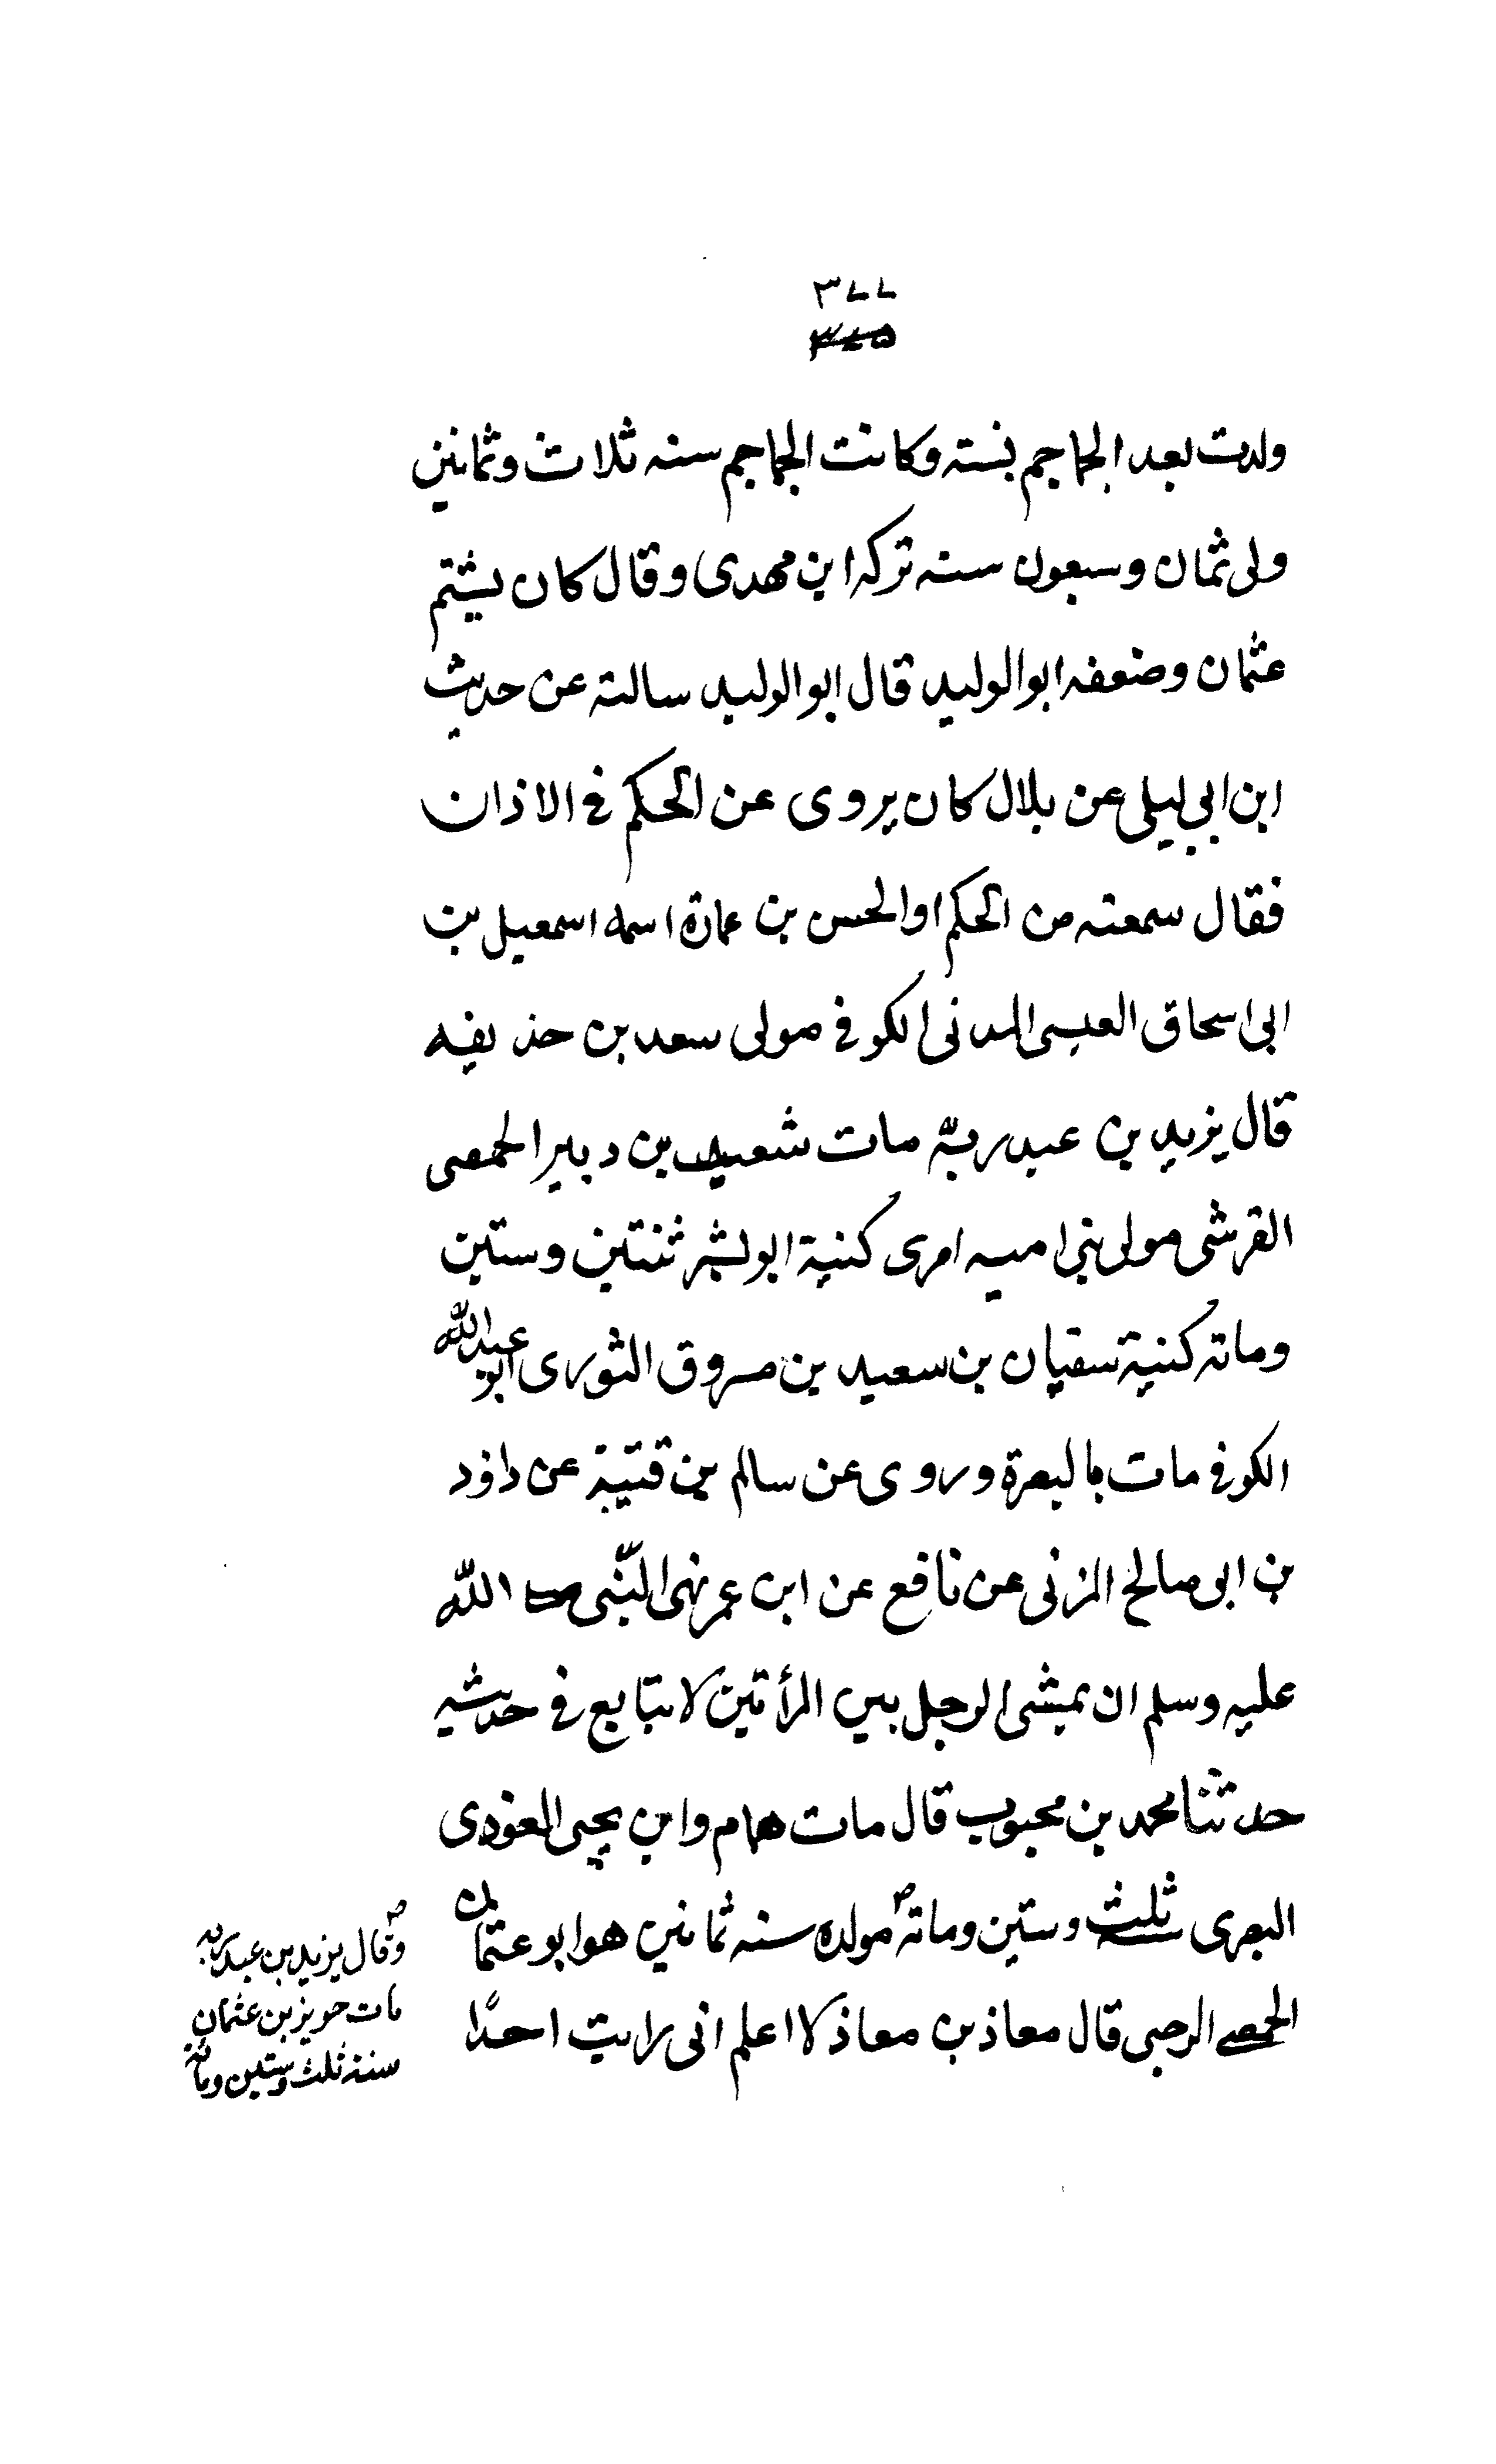 ٣٧٧
٣٤٥
ولدت بعد الجماجم بسنته وكانت الجماجم سنه ثلاث وثمانين
ولى ثمان وسبعون سنه تركه ابن مهدى وقال كان يشتم
عثمان وضعفه ابو الوليد قال ابو الوليد سالته عن حديث
ابن ابى ليلى عن بلال كان يروى عن الحكم فى الاذان
فقال سمعته من الحكم او الحسن بن عمارة اسمه اسمعيل بن
ابى اسحاق العبسى المدنى الكوفى مولى سعد بن حذيفه
قال يزيد بن عبد ربه مات شعيب بن دينار الحمصى
القرشى مولى بنى اميه امرى كنية ابو بشر ثنتين وستين
ومائة كنية سفيان بن سعيد بن مسروق الثورى ابو عبد الله
الكوفى مات بالبصرة وروى عن سالم بن قتيبة عن داؤد
بن ابى صالح المزنى عن نافع عن ابن عمر نهى النبى صلى الله
عليه وسلم ان يمشى الرجل بين المرأتين لا يتابع فى حديثه
حدثنا محمد بن محبوب قال مات همام وابن يحيى العوذى
البصرى سنة ثلث وستين ومائة مولده سنه ثمانين هو ابو عثمان
الحمصى الرحبى قال معاذ بن معاذ لا اعلم انى رايت احدًا
وقال يزيد بن عبد ربه
مات حريز بن عثمان
سنة ثلث وستين ومائة